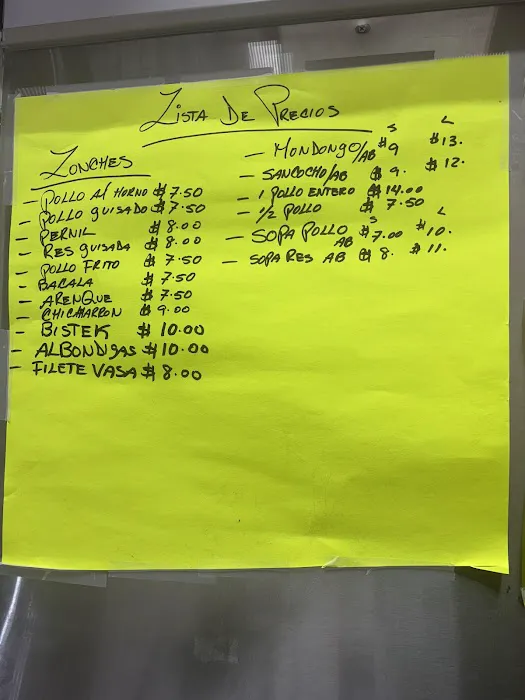 Lista De Precios
Lonches
- Pollo Al Horno $7.50
- Pollo guisado $7.50
- Pernil $8.00
- Res guisada $8.00
- Pollo Frito $7.50
- Bacala $7.50
- Arenque $7.50
- Chicharron $9.00
- Bistek $10.00
- Albondigas $10.00
- Filete Vasa $8.00
S L
- Mondongo/AB $9 $13.
- Sancocho/AB $9. $12.
- 1 Pollo Entero $14.00
- 1/2 Pollo $7.50
S L
- Sopa Pollo AB $7.00 $10.
- Sopa Res AB $8. $11.